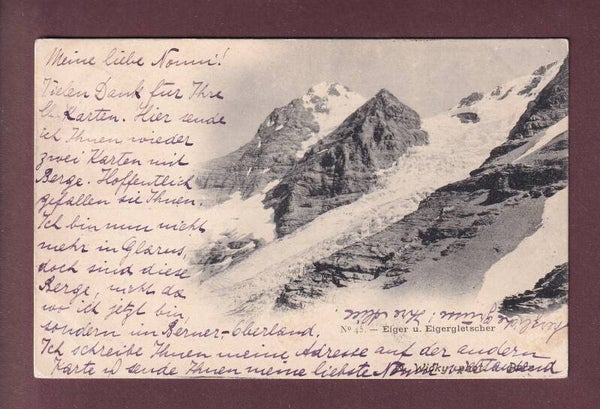 Meine liebe Nonni!
Vielen Dank für Ihre
lb. Karten. Hier sende
ich Ihnen wieder
zwei Karten mit
Berge. Hoffentlich
gefallen sie Ihnen.
Ich bin nun nicht
mehr in Glarus,
doch sind diese
Berge, nicht da
wo ich jetzt bin,
sondern im Berner-Oberland.
Ich schreibe Ihnen meine Adresse auf der andern
Karte u sende Ihnen meine liebste
Ihre
No 45. — Eiger u. Eigergletscher